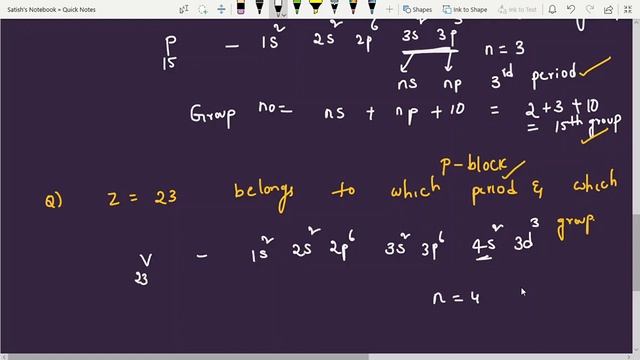 Satish's Notebook » Quick Notes
Ink to Shape
Ink to Text
P 15 - 1s² 2s² 2p⁶ 3s² 3p³
n = 3
ns np 3rd period
Group no = ns + np + 10 = 2 + 3 + 10
= 15th group
P-block
Q) Z = 23 belongs to which period & which
group
V 23 - 1s² 2s² 2p⁶ 3s² 3p⁶ 4s² 3d³
n = 4